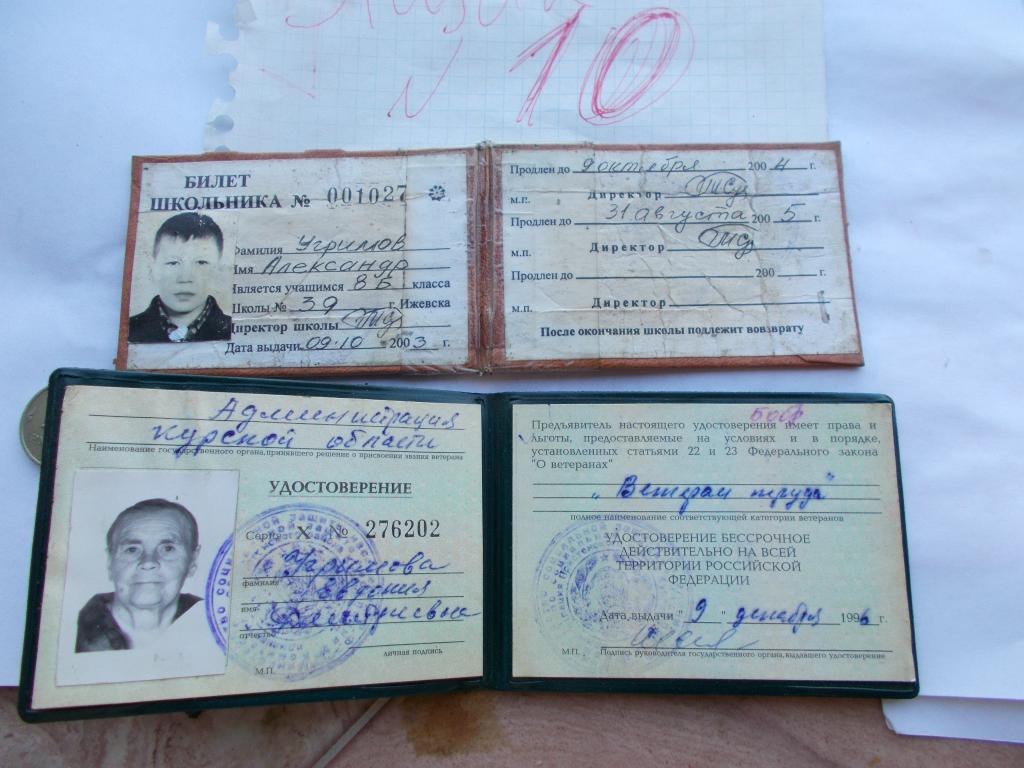 № 10
БИЛЕТ
ШКОЛЬНИКА № 001027
Фамилия Угримов
Имя Александр
Является учащимся 8 Б класса
Школы № 39 г. Ижевска
Директор школы
Дата выдачи 09.10 2003 г.
Продлен до 9 октября 2004 г.
Директор
м.п.
Продлен до 31 августа 2005 г.
Директор
м.п.
Продлен до 200 г.
Директор
м.п.
После окончания школы подлежит вовзврату
Администрация
Курской области
Наименование государственного органа, принявшего решение о присвоении звания ветерана
УДОСТОВЕРЕНИЕ
Серия X № 276202
Угримова
фамилия
Евдокия
имя
Дмитриевна
отчество
личная подпись
М.П.
Предъявитель настоящего удостоверения имеет права и
льготы, предоставляемые на условиях и в порядке,
установленных статьями 22 и 23 Федерального закона
"О ветеранах"
„Ветеран труда"
полное наименование соответствующей категории ветеранов
УДОСТОВЕРЕНИЕ БЕССРОЧНОЕ
ДЕЙСТВИТЕЛЬНО НА ВСЕЙ
ТЕРРИТОРИИ РОССИЙСКОЙ
ФЕДЕРАЦИИ
Дата выдачи " 9 " декабря 1996 г.
М.П. Подпись руководителя государственного органа, выдавшего удостоверение